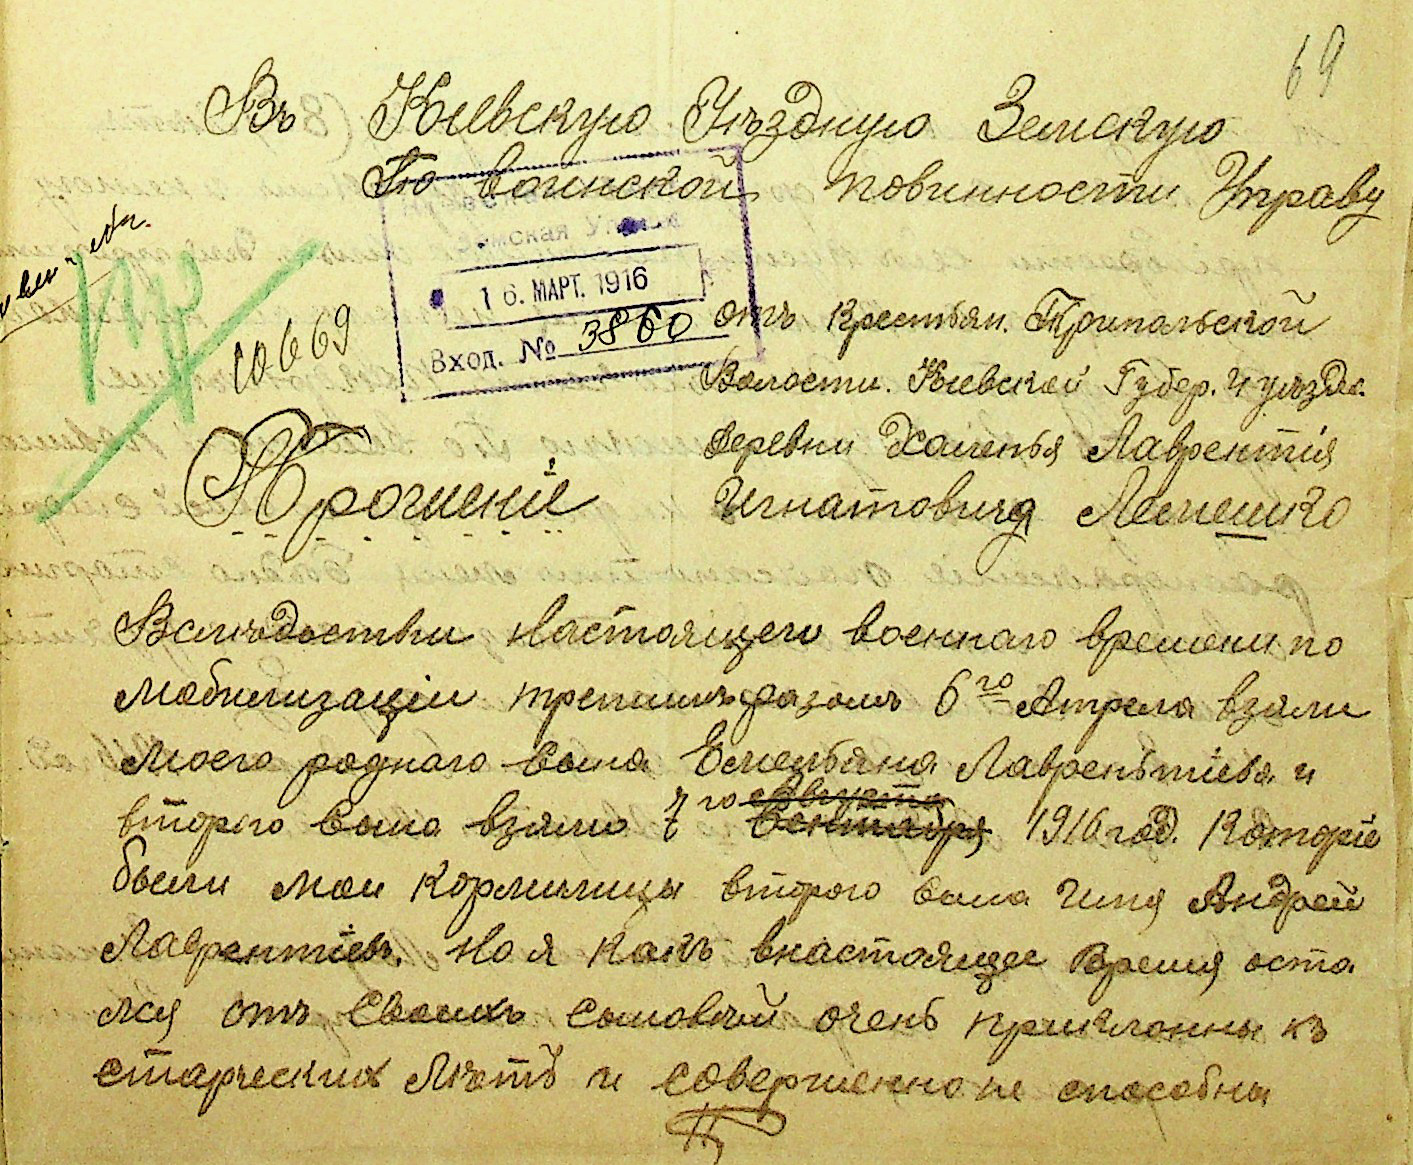 69
Въ Кіевскую Уѣздную Земскую
По воинской повинности Управу
Земская Управа
16. МАРТ. 1916
Вход. № 3860
10669
отъ крестьян. Трипольской
Волости. Кіевской Губер. и уѣзда.
деревни Халепья Лаврентія
Игнатовича Лемешко
Прошеніе
Вслѣдоствіи настоящего военнаго времени по
мобилизаціи третимъ разомъ 6го Апреля взяли
моего роднаго сына Емельяна Лаврентіева и
августа
второго сына взяли 7го Сентября 1916 год. Которіе
были мои кормилицы второго сына имя Андрей
Лаврентіевъ. Но я какъ внастоящее время оста
лся отъ своихъ сыновѣй очень приклонны къ
старческих лѣтъ и совершенно не способны